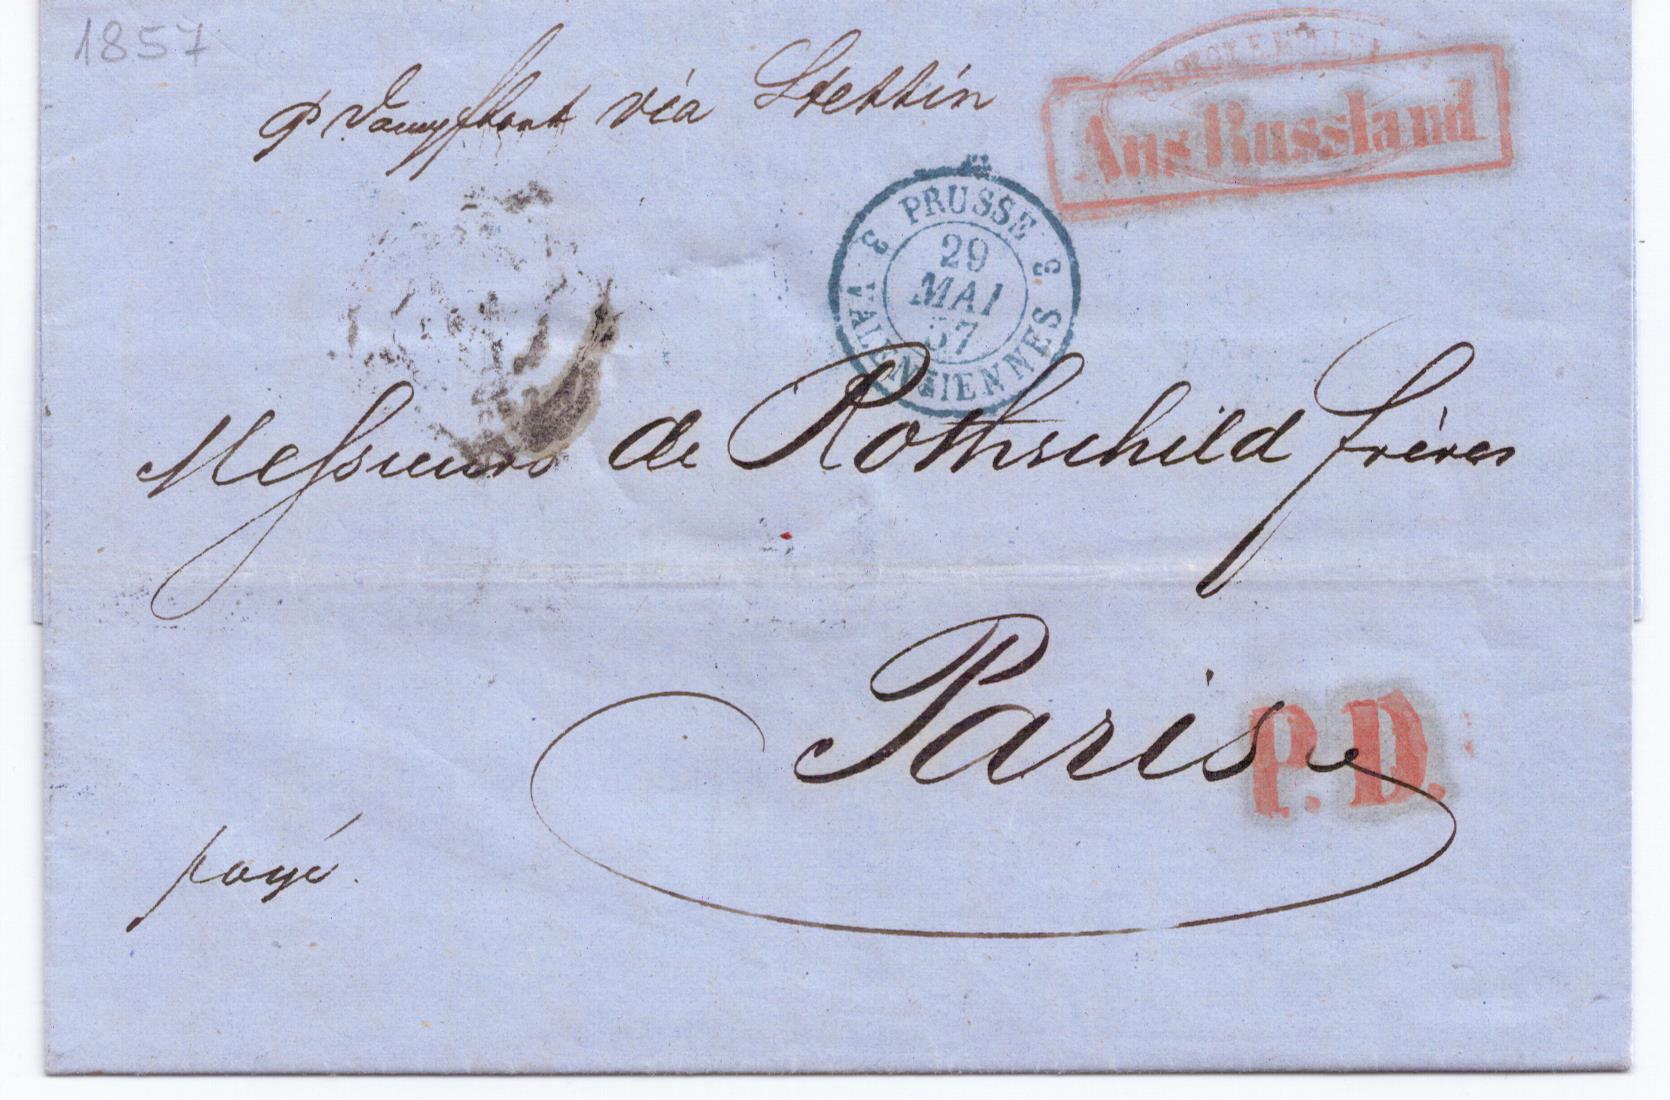 1857
p Dampfboot via Stettin
Aus Russland
PRUSSE
3 3
29
MAI
57
VALENCIENNES
Messieurs de Rothschild frères
Paris
P.D.
payé.